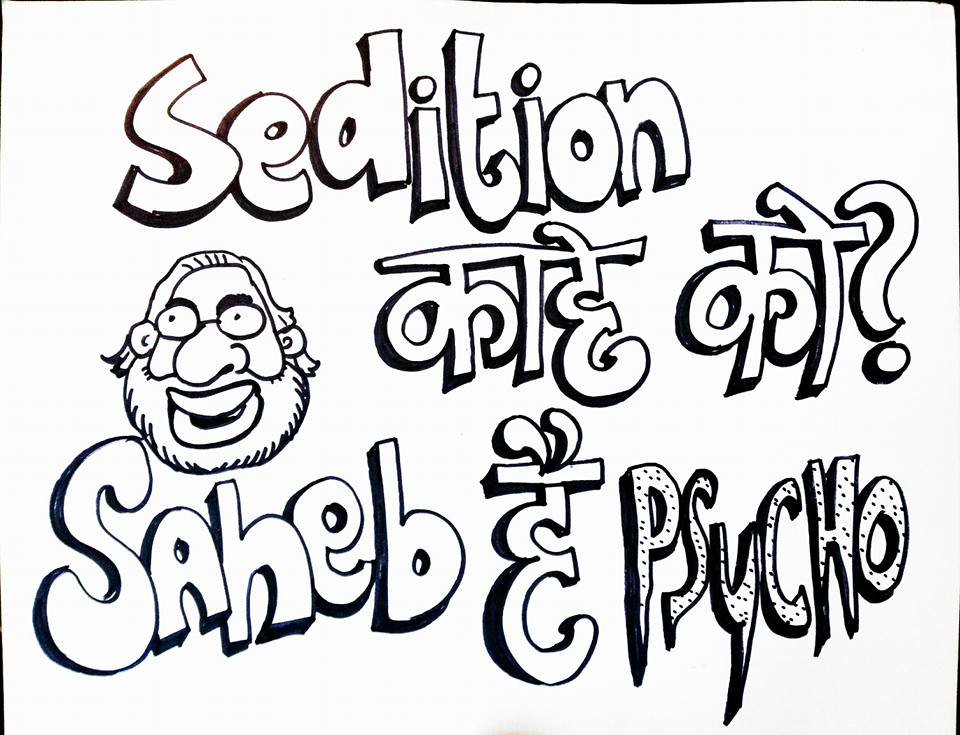 Sedition
काहे को?
Saheb है PSyCHO